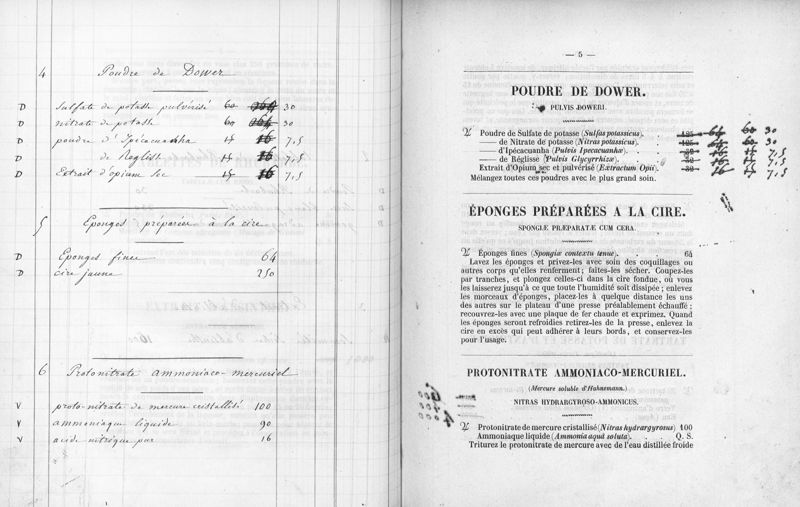 4 Poudre de Dower
D sulfate de potasse pulvérisé 60 264 30
D nitrate de potasse 60 264 30
D poudre d'Ipécacuanha 15 16 7,5
D de Reglisse 15 16 7,5
D Extrait d'opium sec 15 16 7,5
5 Eponges préparées à la cire
D Eponges fines 64
D cire jaune 250
6 Protonitrate ammoniaco-mercuriel
V proto-nitrate de mercure cristallisé 100
V ammoniaque liquide 90
V acide nitrique pur 16
— 5 —
POUDRE DE DOWER.
PULVIS DOWERI.
Poudre de Sulfate de potasse (Sulfas potassicus). 125 64 60 30
— de Nitrate de potasse (Nitras potassicus). 125 64 60 30
— d'Ipécacuanha (Pulvis Ipecacuanhæ). 32 16 15 7,5
— de Réglisse (Pulvis Glycyrrhizæ). 32 16 15 7,5
Extrait d'Opium sec et pulvérisé (Extractum Opii). 32 16 15 7,5
Mélangez toutes ces poudres avec le plus grand soin.
ÉPONGES PRÉPARÉES A LA CIRE.
SPONGIÆ PRÆPARATÆ CUM CERA.
Éponges fines (Spongiæ contextu tenue). 64
Lavez les éponges et privez-les avec soin des coquillages ou
autres corps qu'elles renferment; faites-les sécher. Coupez-les
par tranches, et plongez celles-ci dans la cire fondue, où vous
les laisserez jusqu'à ce que toute l'humidité soit dissipée; enlevez
les morceaux d'éponges, placez-les à quelque distance les uns
des autres sur le plateau d'une presse préalablement échauffé;
recouvrez-les avec une plaque de fer chaude et exprimez. Quand
les éponges seront refroidies retirez-les de la presse, enlevez la
cire en excès qui peut adhérer à leurs bords, et conservez-les
pour l'usage.
PROTONITRATE AMMONIACO-MERCURIEL.
(Mercure soluble d'Hahnemann.)
NITRAS HYDRARGYROSO-AMMONICUS.
Protonitrate de mercure cristallisé (Nitras hydrargyrosus) 100
Ammoniaque liquide (Ammonia aquâ soluta). Q. S.
Triturez le protonitrate de mercure avec de l'eau distillée froide